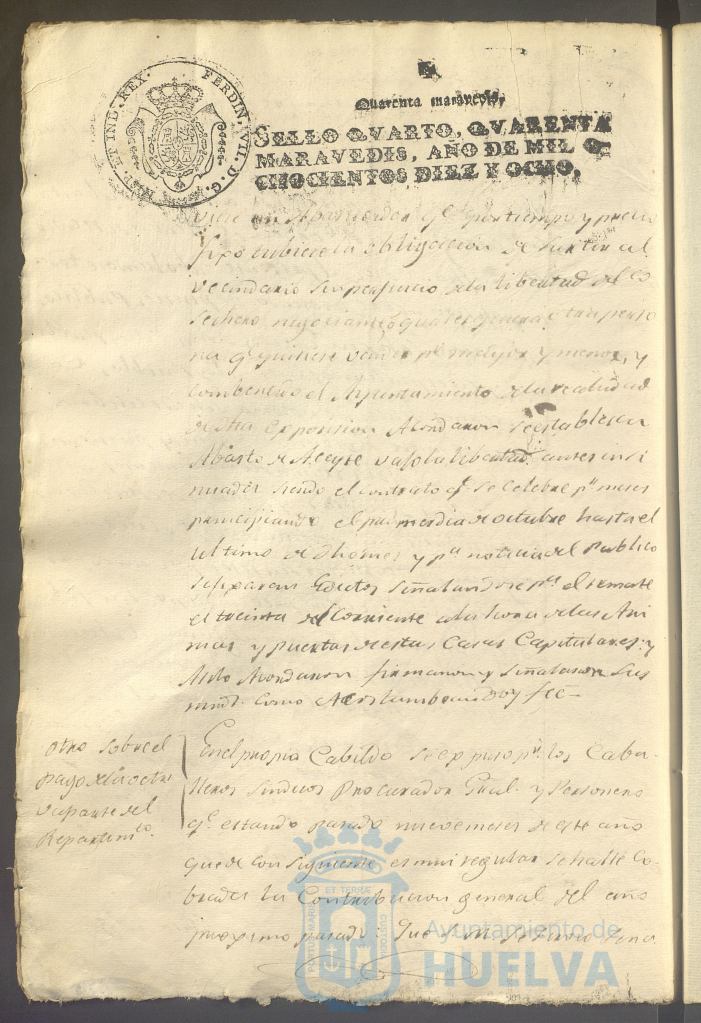 HISP. ET IND. REX. FERDIN. VII. D. G.
Quarenta maravedis.
SELLO QVARTO, QVARENTA
MARAVEDIS, AÑO DE MIL O
CHOCIENTOS DIEZ Y OCHO.
qe. por tiempo y precio
fixo tubiere la obligacion de surtir al
vecindario sin perjuicio de la libertad del co
sechero negociante o qualesquiera otra perso
na qe. quisiere vender pr. mayor y menor, y
el Ayuntamiento de la realidad
de dha exposicion Acordaron se establesca
Abasto de Aceyte vajo la libertad antes insi
nuada siendo el contrato qe. se celebre pr. meses
principiando el primer dia de octubre hasta el
ultimo de dho mes y pa. noticia del Publico
se fixaran Edictos señalandose pa. el remate
el treinta del corriente a la hora de las Ani
mas y puertas de estas Casas Capitulares: y
Asi lo Acordaron firmaron y señalaron sus
mrds. como Acostumbran doy fee=
Otro sobre el
pago de la octa
va parte del
Repartimto.
En el propio Cabildo se expuso pr. los Caba-
lleros Sindicos Procurador Gral. y Personero
qe. estando pasado nueve meses de este año
que de con siguiente es mui regular se halle Co-
brada la Contribucion general del año
proximo pasado: Que
PORTUS MARIS ET TERRÆ CUSTODIA
Ayuntamiento de
HUELVA